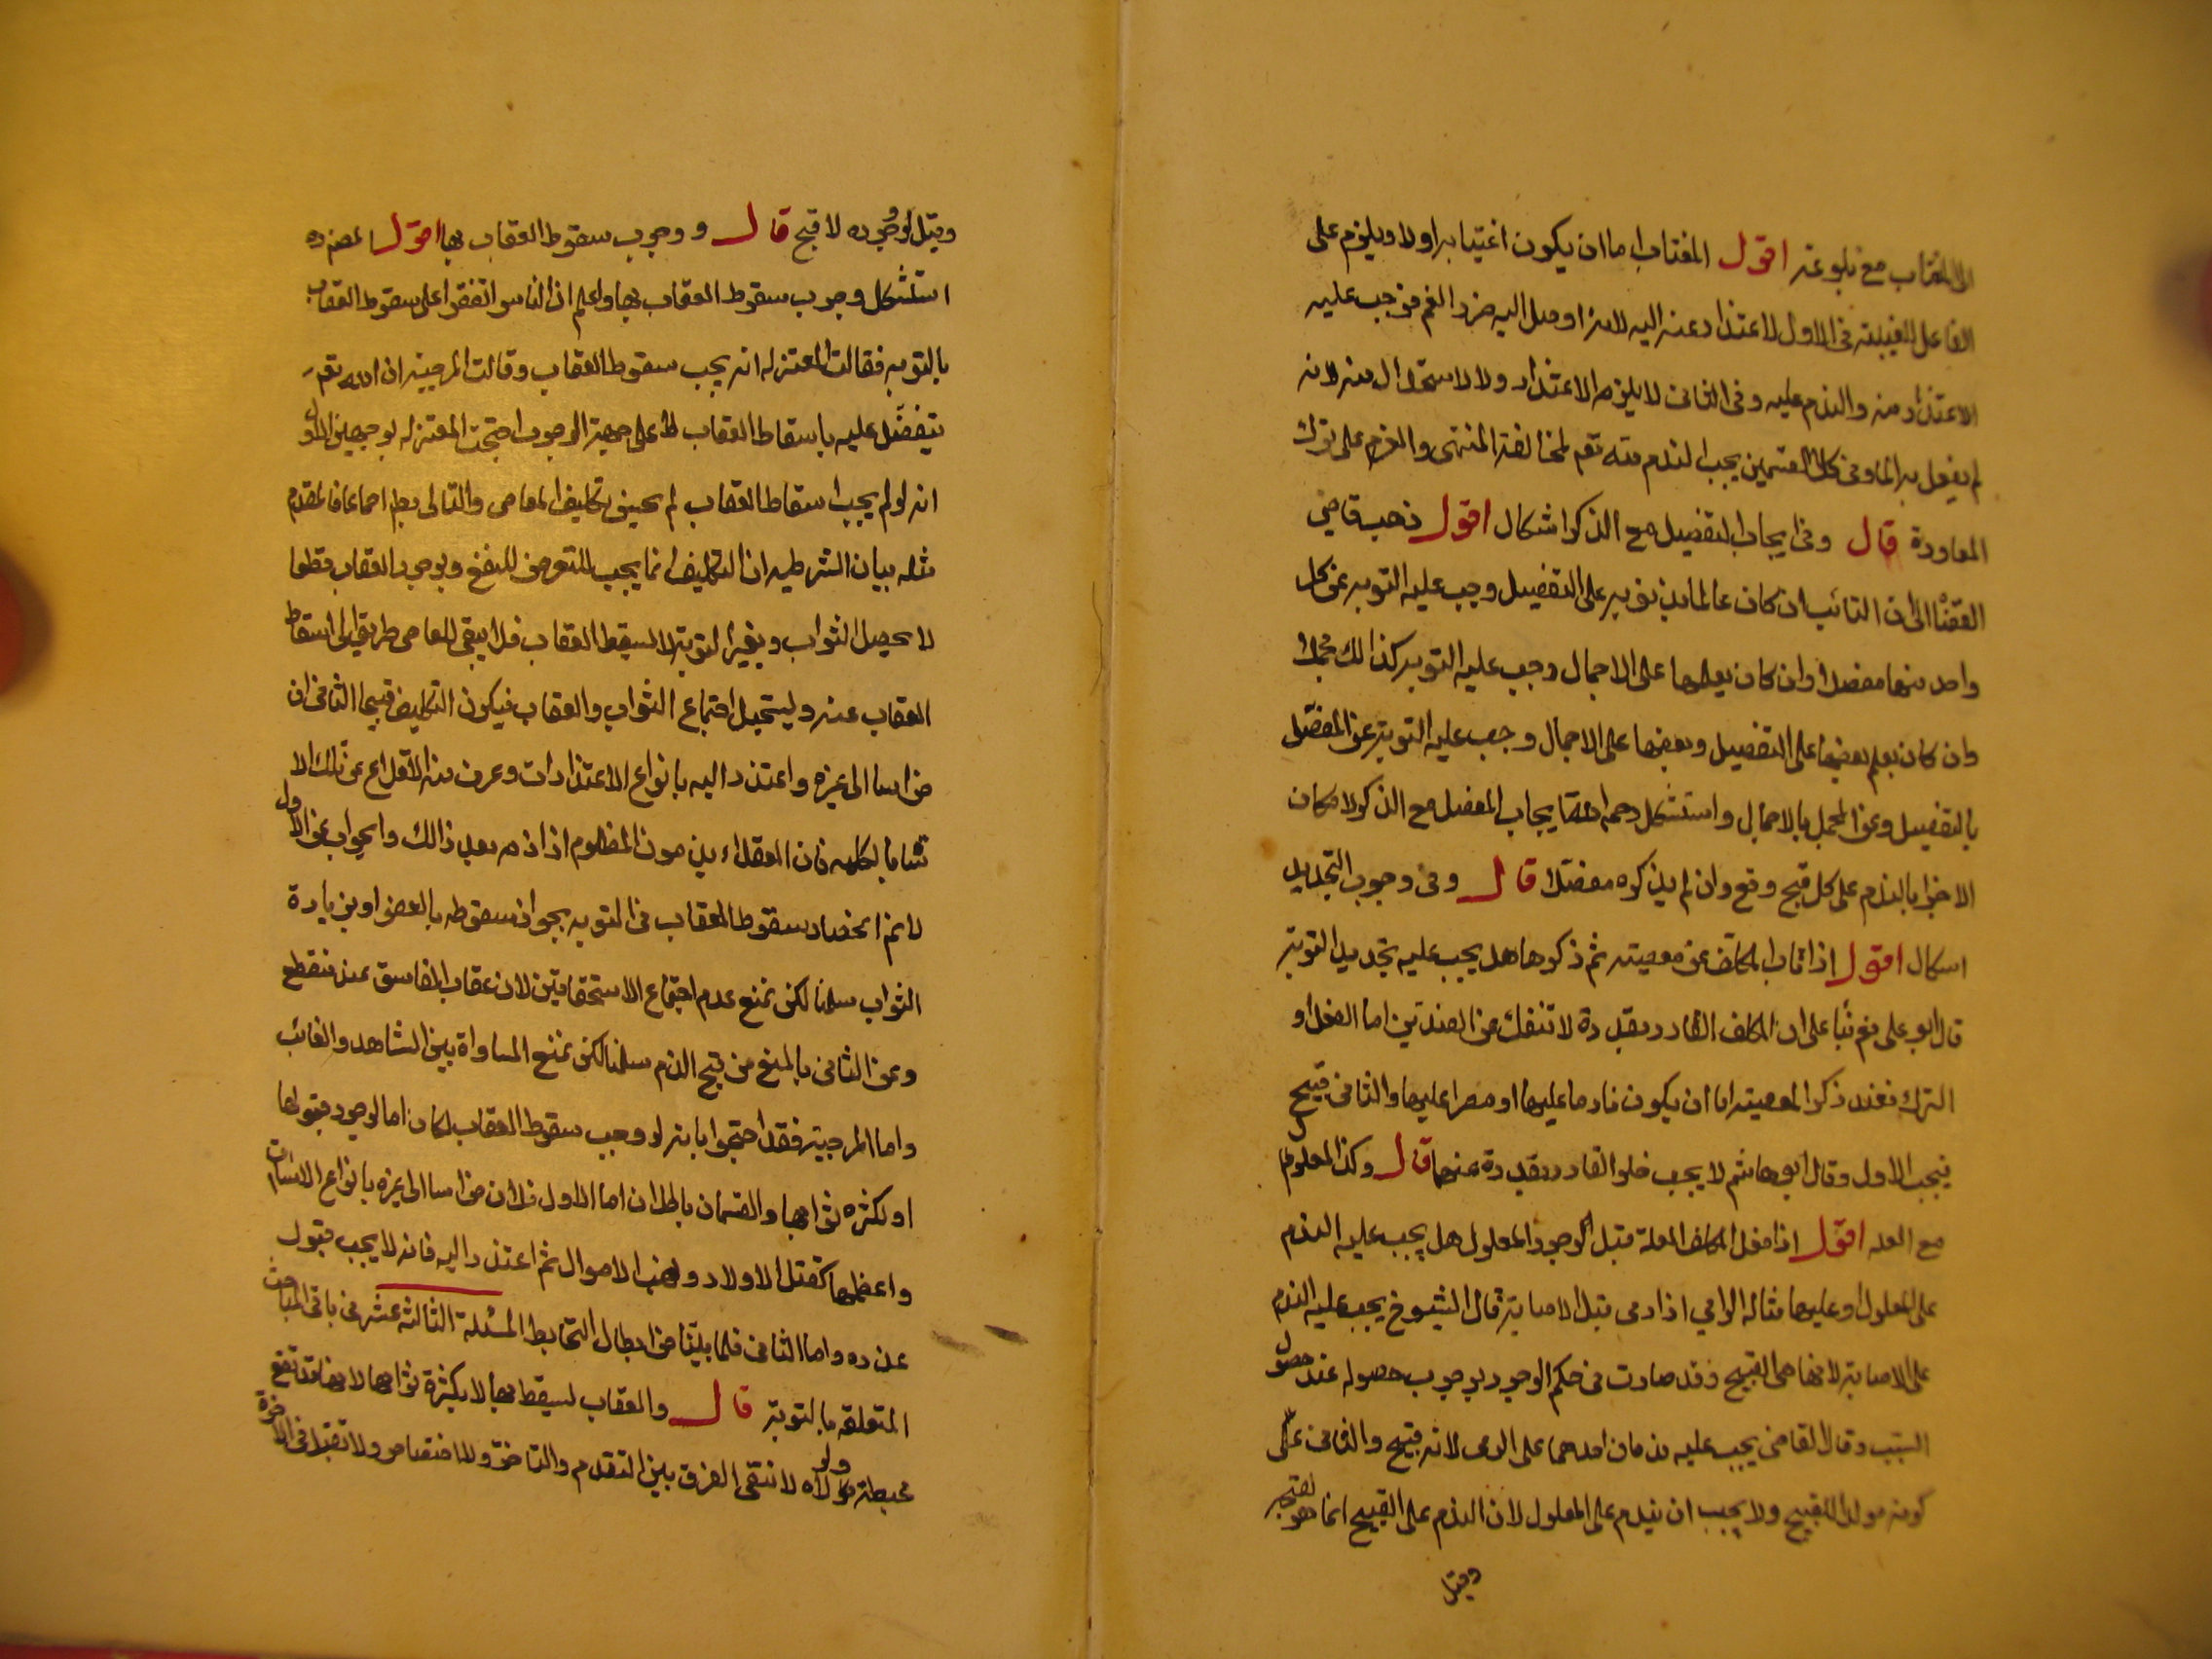 الى المغتاب مع بلوغه اقول المغتاب اما ان يكون اغتيابه اولا ويلزم على
الفاعل للغيبة فى الاول الاعتذار عنه اليه لانه اوصل اليه ضرر الغم فوجب عليه
الاعتذار منه والندم عليه وفى الثانى لا يلزمه الاعتذار ولا الاستحلال منه لانه
لم يفعل به الما وفى كلا القسمين يجب الندم لله تعم لمخالفة المنهى والعزم على ترك
المعاودة قال وفى ايجاب التفصيل مع الذكر اشكال اقول ذهب قاضى
القضاة الى ان التائب ان كان عالما بذنوبه على التفصيل وجب عليه التوبه عن كل
واحد منها مفصلا وان كان يعلمها على الاجمال وجب عليه التوبه كذالك مجملا
وان كان يعلم بعضها على التفصيل وبعضها على الاجمال وجب عليه التوبة عن المفصل
بالتفصيل وعن المجمل بالاجمال واستشكل رحمه الله ايجاب المفصل مع الذكر لامكان
الاجزا بالندم على كل قبيح وقع وان لم يذكره مفصلا قال وفى وجوب التجديد
اشكال اقول اذا تاب المكلف عن معصيته ثم ذكرها هل يجب عليه تجديد التوبة
قال ابو على نعم بنا على ان المكلف القادر بقدرة لا تنفك عن الضدين اما الفعل او
الترك فعند ذكر المعصية اما ان يكون نادما عليها او مصرا عليها والثانى قبيح
فيجب الاول وقال ابو هاشم لا يجب خلو القادر بقدرة عنهما قال وكذا المعلول
مع العله اقول اذا فعل المكلف العلة قبل وجود المعلول هل يجب عليه الندم
على المعلول او عليها مثاله الرامي اذا رمى قبل الاصابة قال الشيوخ يجب عليه الندم
على الاصابة لانها هى القبيح وقد صارت فى حكم الموجود لوجوب حصوله عند حصول
السبب وقال القاضى يجب عليه ندمان احدهما على الرمى لانه قبيح والثانى على
كونه مولدا للقبيح ولا يجب ان يندم على المعلول لان الندم على القبيح انما هو لقبحه
وقبل
وقبل وجوده لا قبح قال ووجوب سقوط العقاب بها اقول المصنف ره
استشكل وجوب سقوط العقاب بها واعلم ان الناس اتفقوا على سقوط العقاب
بالتوبه فقالت المعتزله انه يجب سقوط العقاب وقالت المرجئة ان الله تعم
يتفضل عليه باسقاط العقاب لا على جهة الوجوب احتجت المعتزله بوجهين الاول
انه لو لم يجب اسقاط العقاب لم يحسن تكليف العاصى والتالى بط اجماعا فالمقدم
مثله بيان الشرطيه ان التكليف انما يجب للتعريض للنفع وبوجوب العقاب قطعا
لا يحصل الثواب وبغير التوبة لا يسقط العقاب فلا يبقى للعاصى طريق الى اسقاط
العقاب عنه وليستحيل اجتماع الثواب والعقاب فيكون التكليف قبيحا الثانى ان
من اسا الى غيره واعتذر اليه بانواع الاعتذارات وعرف منه الاقلاع عن تلك الا
ساة بالكليه فان العقلاء يذمون المظلوم اذا ذمه بعد ذالك والجواب عن الاول
لانم انحصار سقوط العقاب فى التوبه بجواز سقوطه بالعفو او بزيادة
الثواب سلمنا لكن نمنع عدم اجتماع الاستحقاقين لان عقاب الفاسق عنه منقطع
وعن الثانى بالمنع من قبح الذم سلمنا لكن نمنع المساواة بين الشاهد والغائب
واما المرجئة فقد احتجوا بانه لو وجب سقوط العقاب لكان اما لوجود قبولها
او لكثره ثوابها والقسمان باطلان اما الاول فلان من اسا الى غيره بانواع الاساات
واعظمها كقتل الاولاد ونهب الاموال ثم اعتذر اليه فانه لا يجب قبول
عذره واما الثانى فلما بينا من ابطال التحابط المسئلة الثالثة عشر فى باقى المباحث
المتعلقه بالتوبة قال والعقاب يسقط بها لا بكثرة ثوابها لانها قد تقع
محبطة ولولاه لانتفى الفرق بين التقدم والتاخر وللاختصاص ولا تقبل فى الاخرة